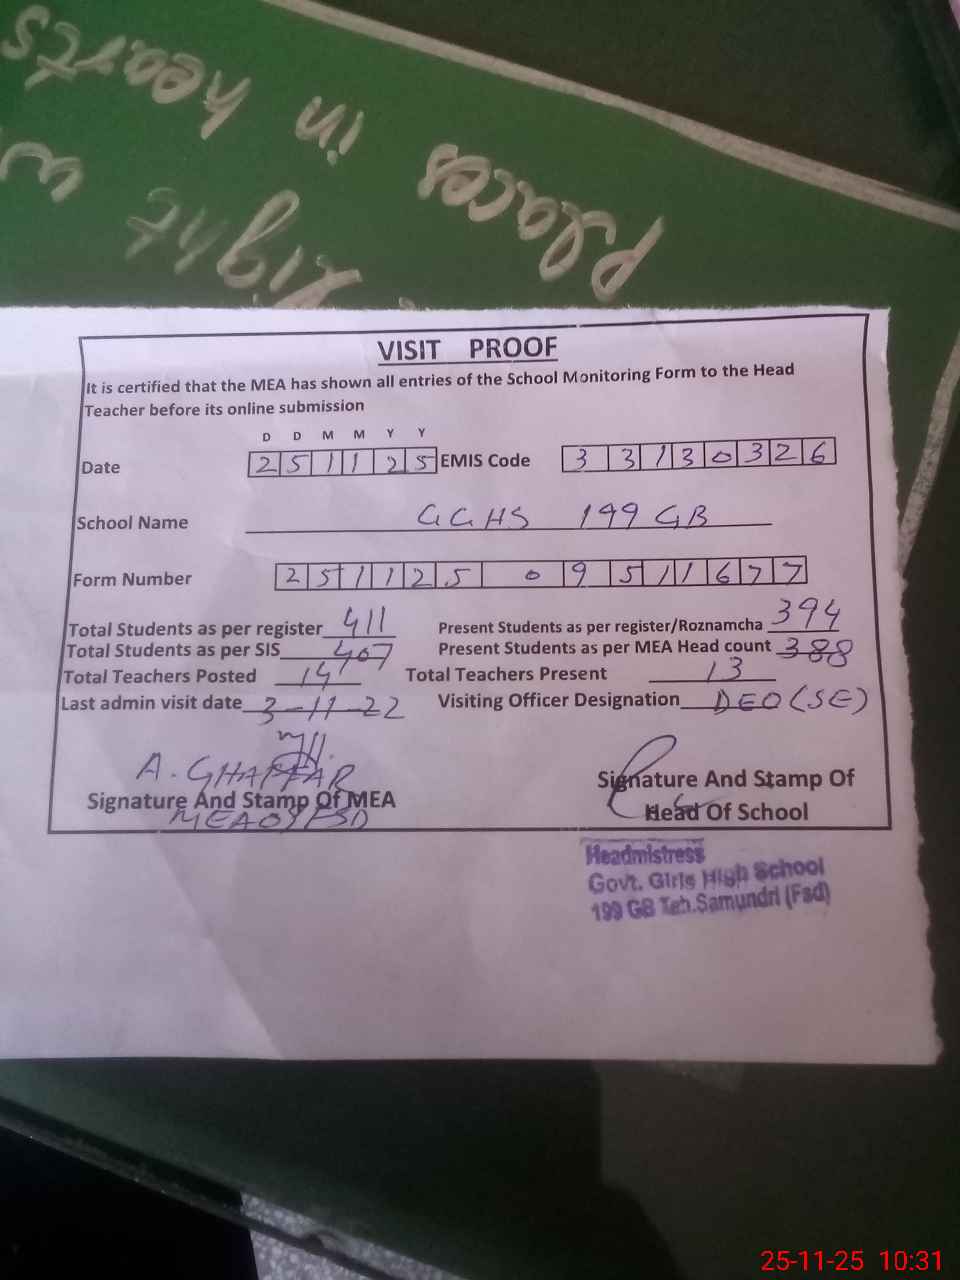 Places in hearts
Right w
VISIT PROOF
It is certified that the MEA has shown all entries of the School Monitoring Form to the Head
Teacher before its online submission
D D M M Y Y
Date 251125 EMIS Code 33130326
School Name GGHS 199 GB
Form Number 251125 09511677
Total Students as per register 411 Present Students as per register/Roznamcha 394
Total Students as per SIS 407 Present Students as per MEA Head count 388
Total Teachers Posted 14 Total Teachers Present 13
Last admin visit date 3-11-22 Visiting Officer Designation DEO (SE)
A. GHAFFAR
Signature And Stamp Of MEA
Signature And Stamp Of
Head Of School
Headmistress
Govt. Girls High School
199 GB Teh.Samundri (Fsd)
25-11-25 10:31